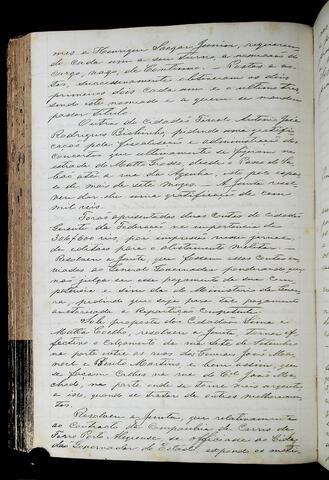 mes e Henrique Junior, requerem,
de cada um a seu turno, a nomeação do
cargo, vago, de Continuo. Postos a vo-
tos, successivamente obtiveram os dois
primeiros dois cada um e o ultimo tres,
sendo este nomeado e a quem se mandou
passar titulo.
Outra do Cidadão Fiscal Antonio José
Rodrigues pedindo uma gratifi-
cação pela fiscalisação e administração dos
Concertos que ultimamente se fizeram na
estrada do Matto Grosso, desde o
até a rua da Azenha, isto por espa-
ço de mais de sete mezes. A Junta resol-
veu dar-lhe uma gratificação de cem
mil reis.
Foram apresentadas duas Contas do Cidadão
Gerente da Federação na importancia de
306$600 reis, por impressões nesse jornal
de editaes para o alistamento militar.
Resolveu a Junta, que fossem essas Contas en-
viadas ao General Governador ponderando que
não julga ser esse pagamento de sua Com-
petencia e sim do Ministerio da Guer-
ra, pedindo que seja para tal pagamento
a Repartição Competente.
Sob proposta dos Cidadãos Lima e
Mattos Coelho, resolveu a Junta tornar ef-
fectivo o calçamento da rua Sete de Setembro
na parte entre as ruas dos Geraes João Ma-
noel e Bento Martins e bem assim, que
se fizesse Calhas na rua do Cel. João Ma-
chado, na parte onde se torne mais urgente
e isso, quando se tratar de outros melhoramen-
tos.
Resolveu a Junta, que relativamente
ao Contracto da Companhia de Carris de
Ferro Porto Alegrense, se officiasse ao Cida-
dão Governador do Estado, expondo os moti-